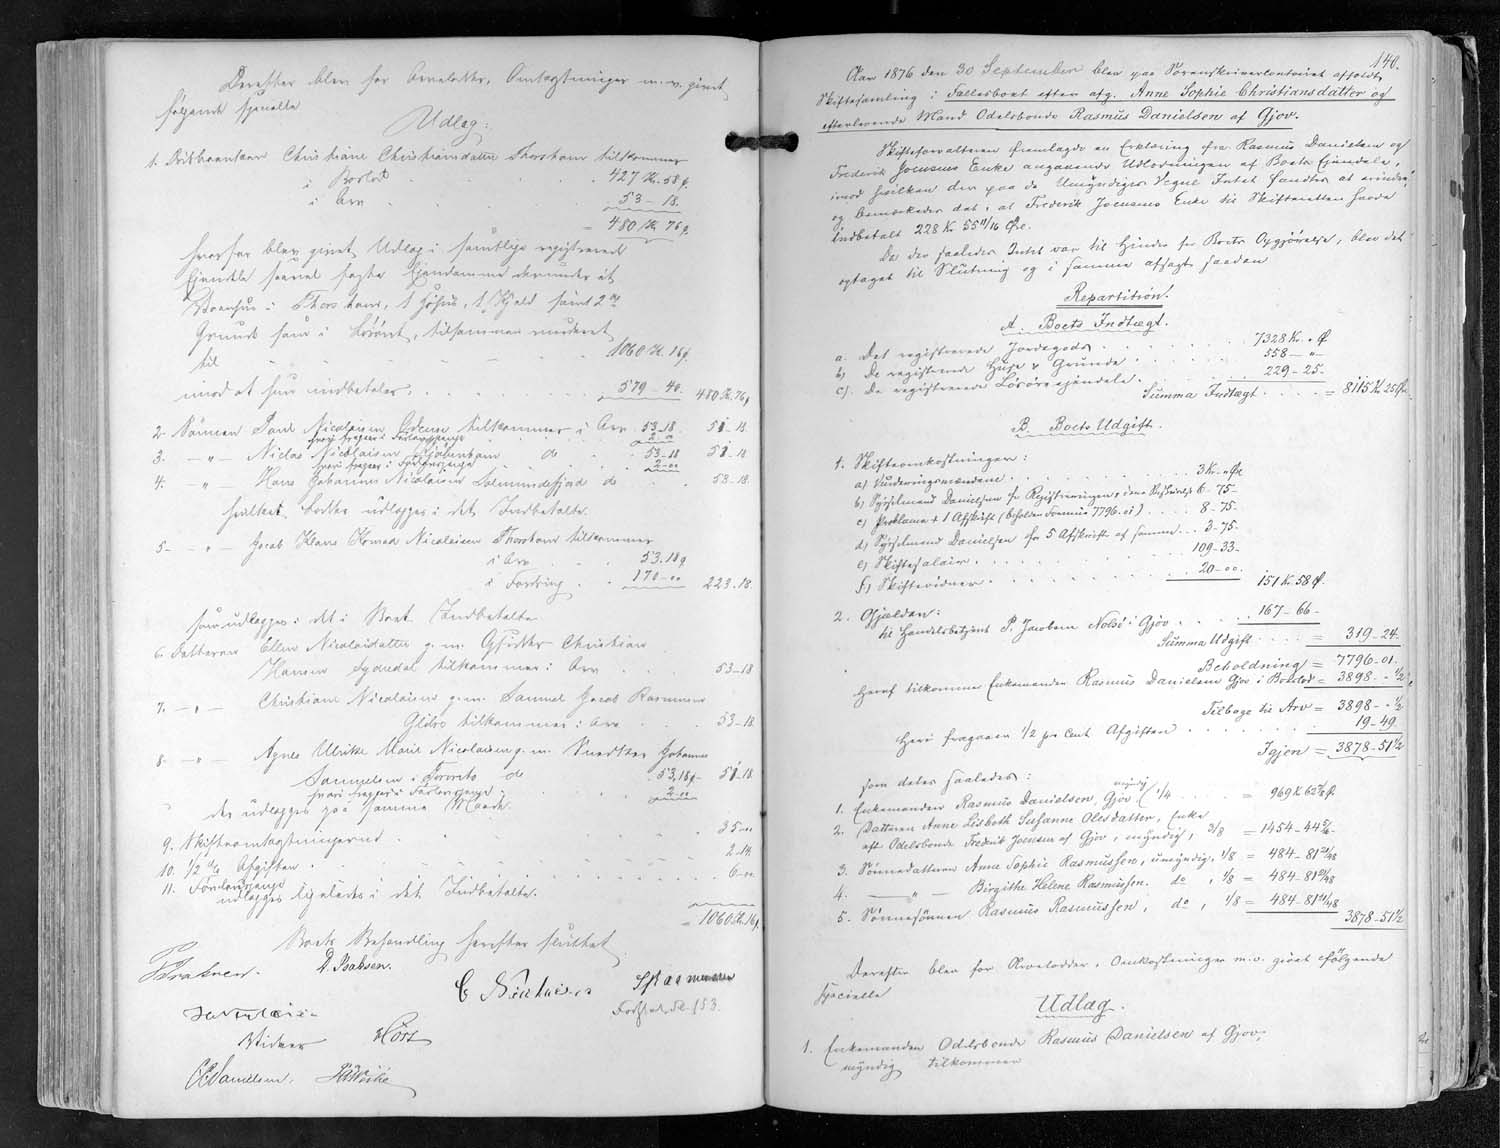 Derefter blev for Arvelodder, Omkostninger m.v. givet
følgende specielle
Udlag:
1. Christiane Christiansdatter Thorshavn tilkommer
i Boslod 427 Kr. 58 Ø
i Arv 53 – 18.
480 Kr. 76 Ø
hvorfor blev givet Udlag i samtlige registrerede
Thorshavn,
Grund samt i Løsøret, tilsammen vurderet
til 1060 Kr. 16 Ø
mod at hun indbetaler 579 – 40. 480 Kr. 76 Ø
2. Sønnen Poul Nicolaisen Odense tilkommer i Arv 53–18. 51–18.
hvori fragaar i Forlovspenge 2–00
3. – " – Niclas Nicolaisen Kjøbenhavn do 53–18 51–18
hvori fragaar i Forlovspenge 2–00
4. – " – Hans Johannes Nicolaisen do 53–18.
hvilke Lodder udlægges i det Indbetalte.
5. – " – Jacob Hans Konrad Nicolaisen Thorshavn tilkommer
i Arv 53.18 Ø
i Fordring 170–00 223.18.
som udlægges i det i Boet Indbetalte
6. Datteren Ellen Nicolaidatter g. m. Christian
Hansen tilkommer i Arv 53–18
7. – " – Christiane Nicolaisen g. m. Samuel Jacob Rasmussen
tilkommer i Arv 53–18.
8. – " – Agnes Ulrikke Marie Nicolaisen g. m. Snedker Johannes
Samuelsen i do 53,18 Ø 51–18
hvori fragaar i Forlovspenge 2–00
der udlægges paa samme Maade.
9. Skifteomkostningerne 35–00
10. 1/2 % Afgiften 2–14.
11. Forlovspenge 6–00
udlægges ligeledes i det Indbetalte.
= 1060 Kr. 16 Ø
Boets Behandling herefter sluttet
D. Isaksen.
C Nicolaisen
153.
Høst
140.
Aar 1876 den 30 September blev paa Sorenskriverkontoiret afholdt
Skiftesamling i Fællesboet efter afg. Anne Sophie Christiansdatter og
efterlevende Mand Odelsbonde Rasmus Danielsen af Gjov.
Skifteforvalteren fremlagde en Erklæring fra Rasmus Danielsen og
Frederik Joensens Enke angaaende Udlodningen af Boets Ejendele,
imod hvilken der paa de Umyndiges Vegne Intet fandtes at erindre,
og bemærkedes det, at Frederik Joensens Enke til Skifteretten havde
indbetalt 228 K 55 11/16 Øre.
Da der saaledes Intet var til Hinder for Boets Opgjørelse, blev det
optaget til Slutning og i samme afsagt saadan
Repartition.
A. Boets Indtægt.
a. Det registrerede Jordegods 7328 Kr. " Ø
b) De registrerede Huse & Grunde 558 – " –
c). De registrerede Løsøreejendele 229 – 25 –
Summa Indtægt = 8115 Kr. 25 Øre
B. Boets Udgift.
1. Skifteomkostninger:
a) Vurderingsmændene 3 Kr. " Øre
b) Sysselmand Danielsen for Registreringen 6–75–
c) Proklama + 1 Afskrift (beholden Formue 7796.01) 8–75–
d) Sysselmand Danielsen for 5 Afskrift af samme 3–75–
e) Skiftesalair 109–33–
f) Skiftevidner 20–00. 151 Kr. 58 Ø
2. Gjælden:
til Handelsbetjent P. Jacobsen Nolsø i Gjov 167–66–
Summa Udgift = 319–24–
Beholdning = 7796–01–
Heraf tilkommer Enkemanden Rasmus Danielsen Gjov i Boslod = 3898 – " 1/2
Tilbage til Arv = 3898 – " 1/2
Heri fragaaer 1/2 pr Cent Afgiften 19–49.
Igjen = 3878–51 1/2
som deles saaledes:
1. Enkemanden Rasmus Danielsen, Gjov myndig 1/4 = 969 K 62 7/8 Ø
2. Datteren Anne Lisbeth Susanne Olesdatter, Enke
eft Odelsbonde Frederik Joensen af Gjov, myndig, 3/8 = 1454–44 5/16
3. Sønnedatteren Anne Sophie Rasmussen, umyndig, 1/8 = 484–81
4. – " – Birgithe Helene Rasmussen. do, 1/8 = 484–81
5. Sønnesønnen Rasmus Rasmussen, do, 1/8 = 484–81
3878–51 1/2
Derefter blev for Arvelodder, Omkostninger m.v. givet følgende
specielle
Udlag.
1. Enkemanden Odelsbonde Rasmus Danielsen af Gjov,
myndig tilkommer